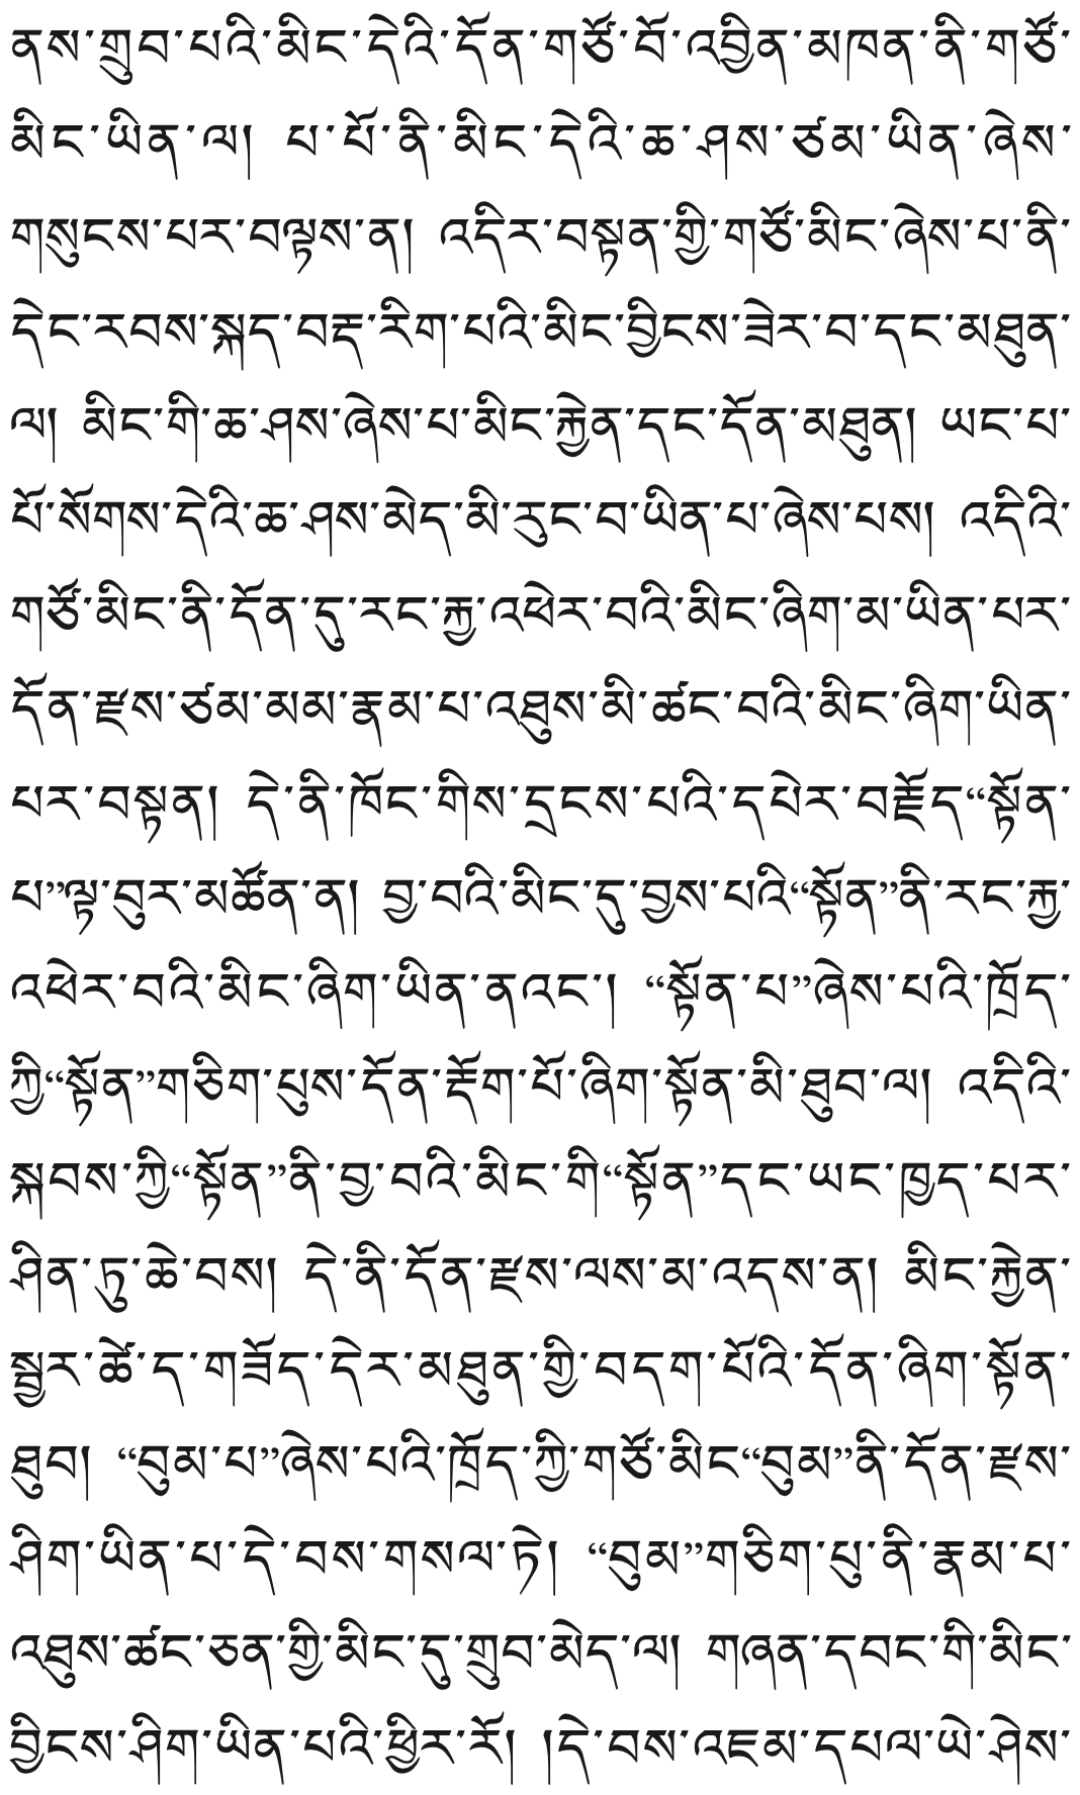 ནས་གྲུབ་པའི་མིང་དེའི་དོན་གཙོ་བོ་འབྱིན་མཁན་ནི་གཙོ་
མིང་ཡིན་ལ། པ་པོ་ནི་མིང་དེའི་ཆ་ཤས་ཙམ་ཡིན་ཞེས་
གསུངས་པར་བལྟས་ན། འདིར་བསྟན་གྱི་གཙོ་མིང་ཞེས་པ་ནི་
དེང་རབས་སྐད་བརྡ་རིག་པའི་མིང་བྱིངས་ཟེར་བ་དང་མཐུན་
ལ། མིང་གི་ཆ་ཤས་ཞེས་པ་མིང་རྐྱེན་དང་དོན་མཐུན། ཡང་པ་
པོ་སོགས་དེའི་ཆ་ཤས་མེད་མི་རུང་བ་ཡིན་པ་ཞེས་པས། འདིའི་
གཙོ་མིང་ནི་དོན་དུ་རང་རྐྱ་འཕེར་བའི་མིང་ཞིག་མ་ཡིན་པར་
དོན་རྫས་ཙམ་མམ་རྣམ་པ་འཐུས་མི་ཚང་བའི་མིང་ཞིག་ཡིན་
པར་བསྟན། དེ་ནི་ཁོང་གིས་དྲངས་པའི་དཔེར་བརྗོད“སྟོན་
པ”ལྟ་བུར་མཚོན་ན། བྱ་བའི་མིང་དུ་བྱས་པའི“སྟོན”ནི་རང་རྐྱ་
འཕེར་བའི་མིང་ཞིག་ཡིན་ནའང་། “སྟོན་པ”ཞེས་པའི་ཁྲོད་
ཀྱི“སྟོན”གཅིག་པུས་དོན་རྡོག་པོ་ཞིག་སྟོན་མི་ཐུབ་ལ། འདིའི་
སྐབས་ཀྱི“སྟོན”ནི་བྱ་བའི་མིང་གི“སྟོན”དང་ཡང་ཁྱད་པར་
ཤིན་ཏུ་ཆེ་བས། དེ་ནི་དོན་རྫས་ལས་མ་འདས་ན། མིང་རྐྱེན་
སྦྱར་ཚེ་ད་གཟོད་དེར་མཐུན་གྱི་བདག་པོའི་དོན་ཞིག་སྟོན་
ཐུབ། “བུམ་པ”ཞེས་པའི་ཁྲོད་ཀྱི་གཙོ་མིང“བུམ”ནི་དོན་རྫས་
ཤིག་ཡིན་པ་དེ་བས་གསལ་ཏེ། “བུམ”གཅིག་པུ་ནི་རྣམ་པ་
འཐུས་ཚང་ཅན་གྱི་མིང་དུ་གྲུབ་མེད་ལ། གཞན་དབང་གི་མིང་
བྱིངས་ཤིག་ཡིན་པའི་ཕྱིར་རོ། །དེ་བས་འཇམ་དཔལ་ཡེ་ཤེས་